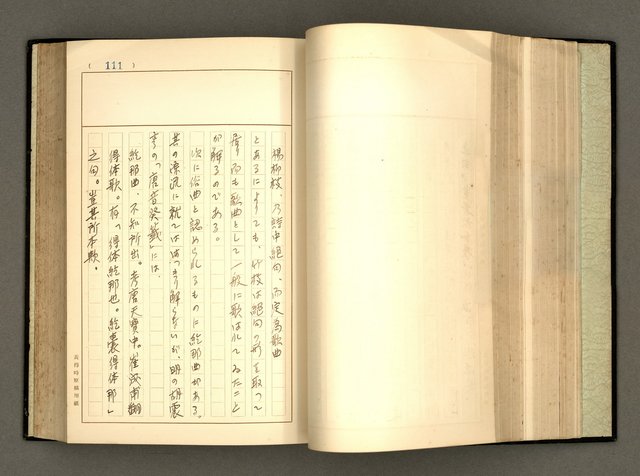 ( 111 )
楊柳枝、乃詩中絶句、而定為歌曲
とあるによつても、竹枝は絶句の形を取つて
居り而も歌曲として一般に歌はれてゐたこと
が解るのである。
次に俗曲と認められるものに紇那曲がある。
其の源流に就てははつきり解らないが、明の胡震
亨の「唐音癸籤」には、
紇那曲、不知所出。考唐天寶中。崔成甫翻
得体歌。有「得体紇那也。紇嚢得体那」
之句。豈其所本歟。
長得時原稿用紙